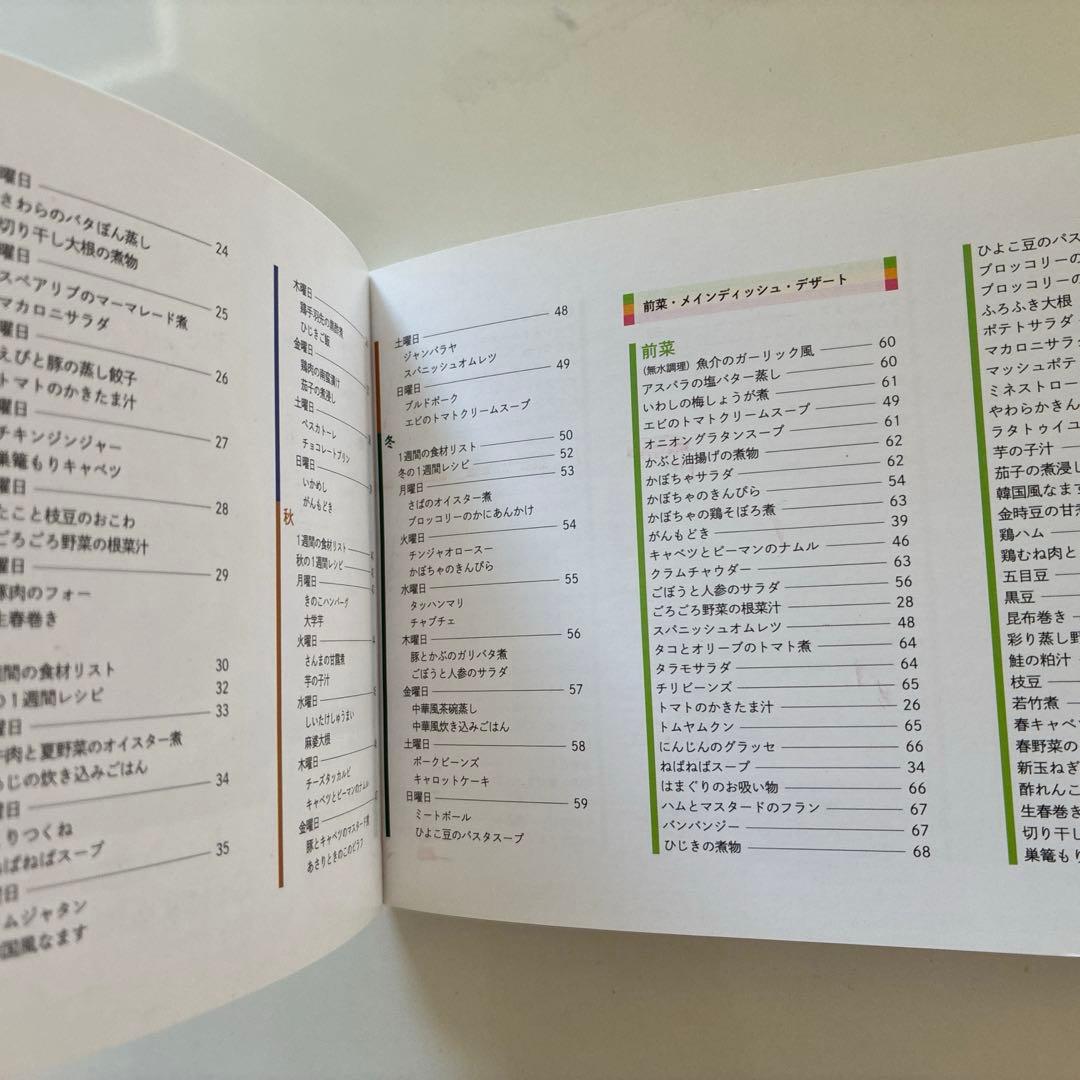 曜日 24
さわらのバタぽん蒸し
切り干し大根の煮物
曜日 25
スペアリブのマーマレード煮
マカロニサラダ
曜日 26
えびと豚の蒸し餃子
トマトのかきたま汁
曜日 27
チキンジンジャー
巣篭もりキャベツ
曜日 28
たこと枝豆のおこわ
ごろごろ野菜の根菜汁
曜日 29
豚肉のフォー
生春巻き
週間の食材リスト 30
の1週間レシピ 32
曜日 33
牛肉と夏野菜のオイスター煮
の炊き込みごはん
曜日 34
りつくね
ねばねばスープ
曜日 35
ムジャタン
国風なます
木曜日
鶏手羽先の黒酢煮
ひじきご飯
金曜日
鶏肉の南蛮漬け
茄子の煮浸し
土曜日
ペスカトーレ
チョコレートプリン
日曜日
いかめし
がんもどき
秋
1週間の食材リスト
秋の1週間レシピ
月曜日
きのこハンバーグ
大学芋
火曜日
さんまの甘露煮
芋の子汁
水曜日
しいたけしゅうまい
麻婆大根
木曜日
チーズタッカルビ
キャベツとピーマンのナムル
金曜日
豚とキャベツのマスタード煮
あさりときのこのピラフ
土曜日 48
ジャンバラヤ
スパニッシュオムレツ
日曜日 49
プルドポーク
エビのトマトクリームスープ
冬
1週間の食材リスト 50
冬の1週間レシピ 52
月曜日 53
さばのオイスター煮
ブロッコリーのかにあんかけ
火曜日 54
チンジャオロースー
かぼちゃのきんぴら
水曜日 55
タッハンマリ
チャプチェ
木曜日 56
豚とかぶのガリバタ煮
ごぼうと人参のサラダ
金曜日 57
中華風茶碗蒸し
中華風炊き込みごはん
土曜日 58
ポークビーンズ
キャロットケーキ
日曜日 59
ミートボール
ひよこ豆のパスタスープ
前菜・メインディッシュ・デザート
前菜
(無水調理) 魚介のガーリック風 60
アスパラの塩バター蒸し 60
いわしの梅しょうが煮 61
エビのトマトクリームスープ 49
オニオングラタンスープ 61
かぶと油揚げの煮物 62
かぼちゃサラダ 62
かぼちゃのきんぴら 54
かぼちゃの鶏そぼろ煮 63
がんもどき 39
キャベツとピーマンのナムル 46
クラムチャウダー 63
ごぼうと人参のサラダ 56
ごろごろ野菜の根菜汁 28
スパニッシュオムレツ 48
タコとオリーブのトマト煮 64
タラモサラダ 64
チリビーンズ 65
トマトのかきたま汁 26
トムヤムクン 65
にんじんのグラッセ 66
ねばねばスープ 34
はまぐりのお吸い物 66
ハムとマスタードのフラン 67
バンバンジー 67
ひじきの煮物 68
ひよこ豆のパス
ブロッコリーの
ブロッコリーの
ふろふき大根
ポテトサラダ
マカロニサラダ
マッシュポテト
ミネストロー
やわらかきん
ラタトゥイユ
芋の子汁
茄子の煮浸し
韓国風なます
金時豆の甘煮
鶏ハム
鶏むね肉と
五目豆
黒豆
昆布巻き
彩り蒸し野
鮭の粕汁
枝豆
若竹煮
春キャベツ
春野菜の
新玉ねぎ
酢れんこ
生春巻き
切り干し
巣篭もり